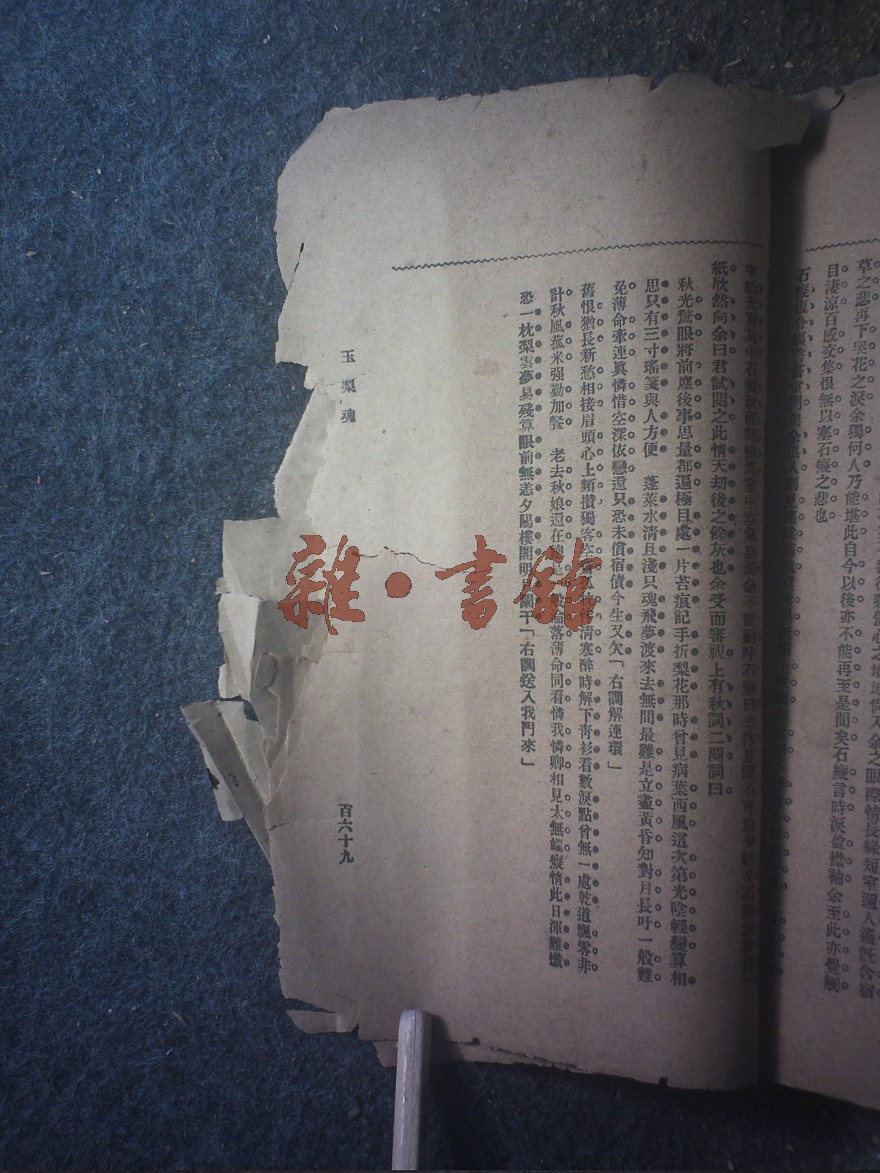 草之悲再下哭花之淚余獨何人乃能堪此自今以後亦不能再至是間矣石癡言時淚盈襟袖余至此亦覺觸
目淒涼百感交集恨無以塞石癡之悲也
紙欣然向余曰君試閱之此情天刧後之餘灰也余受而審視上有秋詞二闋詞曰
秋光驚眼將前塵後事思量都遍極目處一片苔痕記手折梨花那時曾見病葉西風這次第光陰輕變算相
思只有三寸瑤箋與人方便 蓬萊水清且淺只魂飛夢渡來去無間最難是立盡黃昏知對月長吁一般難
免薄命牽連眞憐惜空深依戀還只恐未償宿債今生又欠「右調解連環」
舊恨猶長新愁相接眉頭心上頻攢獨客空 清寒醉時解下靑衫看數淚點曾無一處乾道飄零非
計秋風菰米强勤加餐 老去秋娘還在 淪落薄命同看憐我憐卿相見太無端癡情此日渾難懺
恐一枕梨雲夢易殘算眼前無恙夕陽樓閣明月闌干「右調送入我門來」
玉梨魂
百六十九
雜·書館